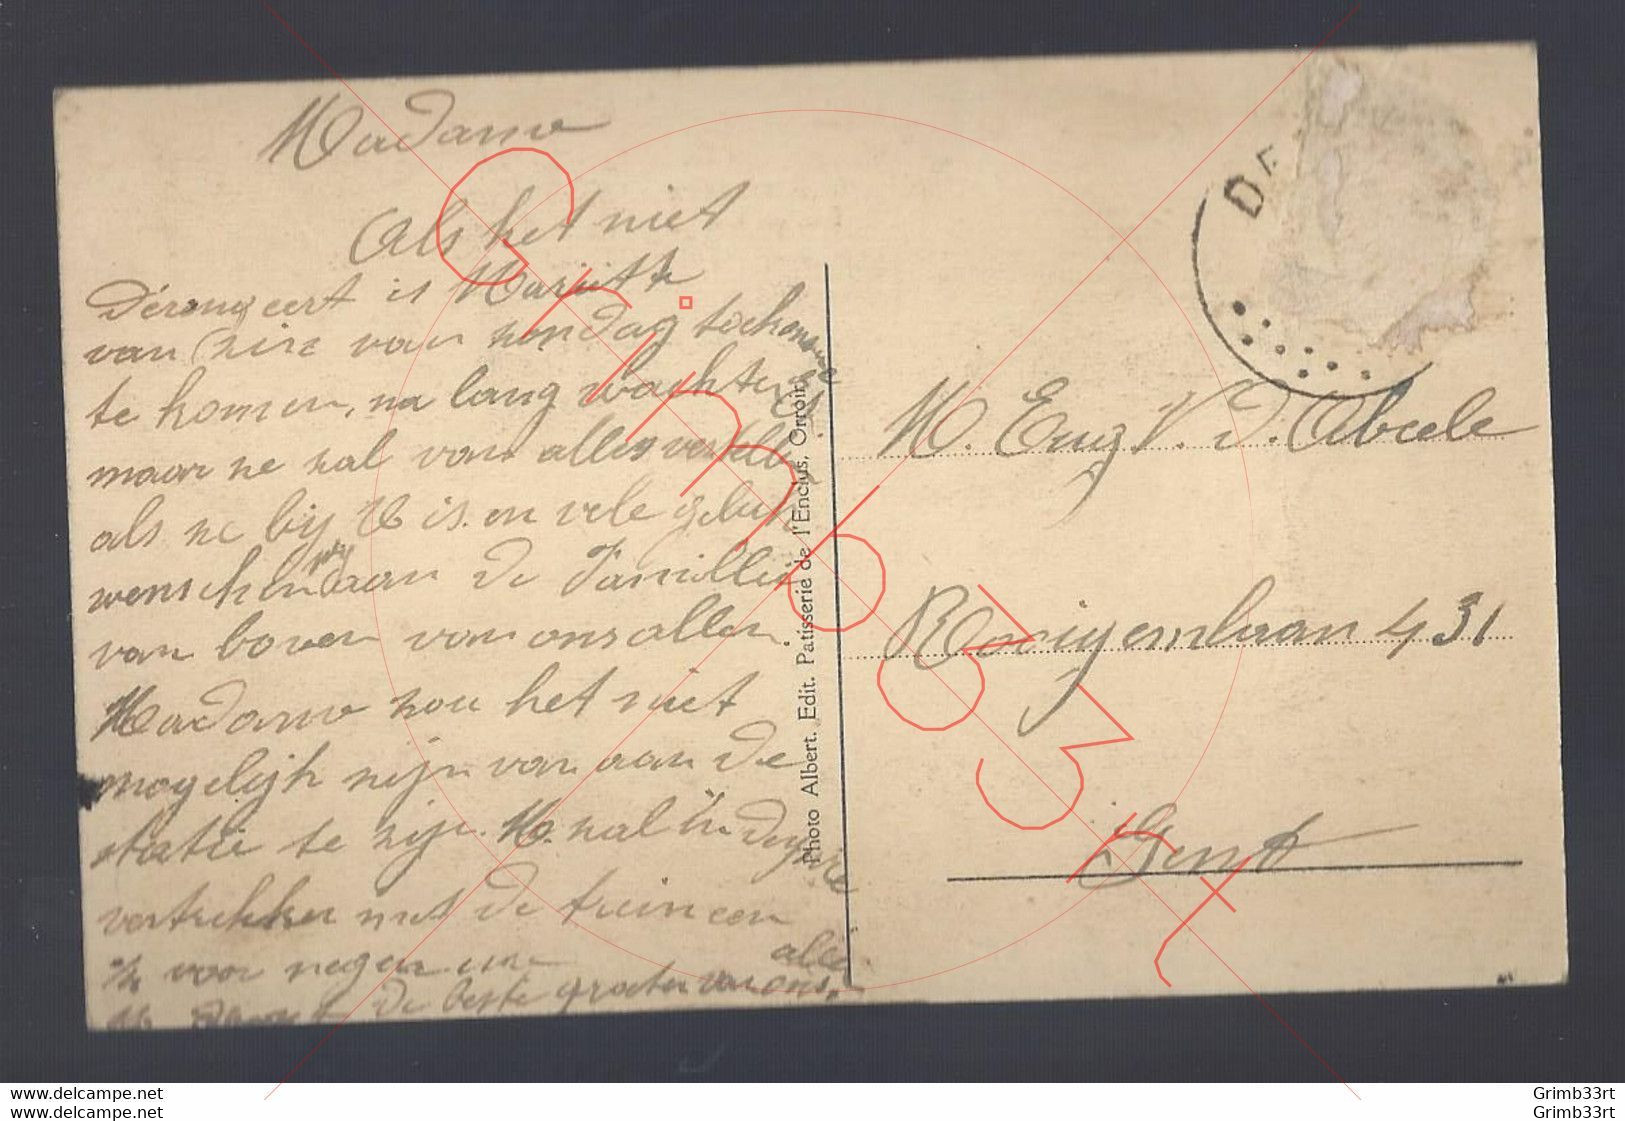 Madame
Als het niet
Derangeert is
van zin van zondag toekomende
te komen, na lang wachten
maar ze zal van alles vertellen
als ze bij U is. en vele geluk
wenschen aan de Familie
van boven van ons allen.
Madame zou het niet
mogelijk zijn van aan de
statie te zijn. M. zal in
vertrekken met de trein een
voor negen ure
De beste groeten van ons allen
Photo Albert. Edit. Patisserie de l'Enclus, Orroir.
DE
M. Eug V. d. Abeele
Rooigemlaan 431
Gent
Grimb33rt
www.delcampe.net Grimb33rt
www.delcampe.net Grimb33rt